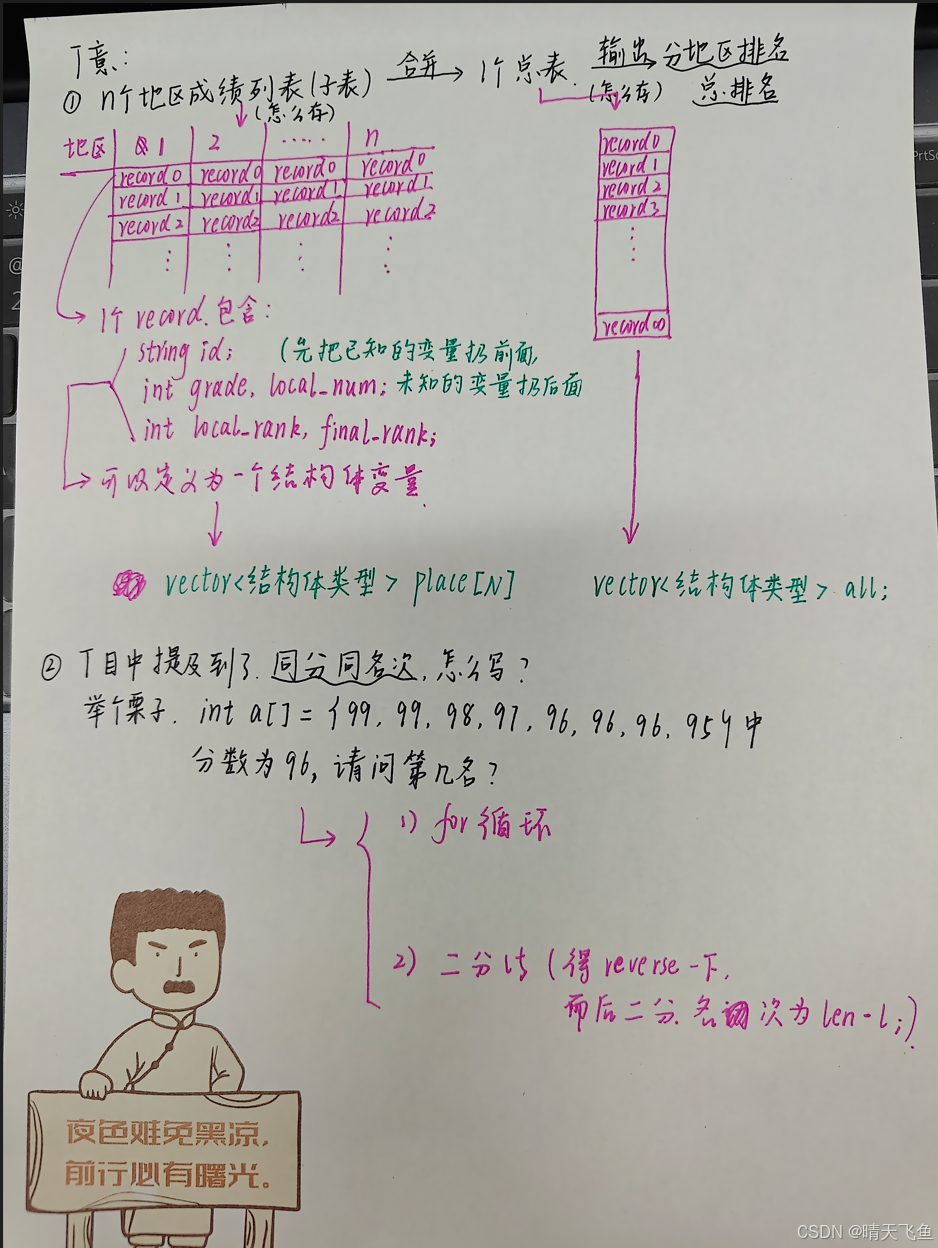 丁意:
① n个地区成绩列表(子表) 合并 1个总表. 输出 分地区排名
(怎么存) (怎么存) 总排名
地区 1 2 ..... n
record0 record0 record0 record0
record1 record1 record1 record1
record2 record2 record2 record2
record0
record1
record2
record3
record∞
1个 record 包含:
string id; (先把已知的变量扔前面,
int grade, local_num; 未知的变量扔后面
int local_rank, final_rank;
可以定义为一个结构体变量.
vector<结构体类型> place[N] vector<结构体类型> all;
② 丁目中提及到了.同分同名次,怎么写?
举个栗子. int a[] = {99, 99, 98, 97, 96, 96, 96, 95}中
分数为96,请问第几名?
1) for循环
2) 二分法 (得reverse一下,
而后二分.名次为len-l;)
夜色难免黑凉,
前行必有曙光。
PrtSc
@
2
CSDN @晴天飞鱼